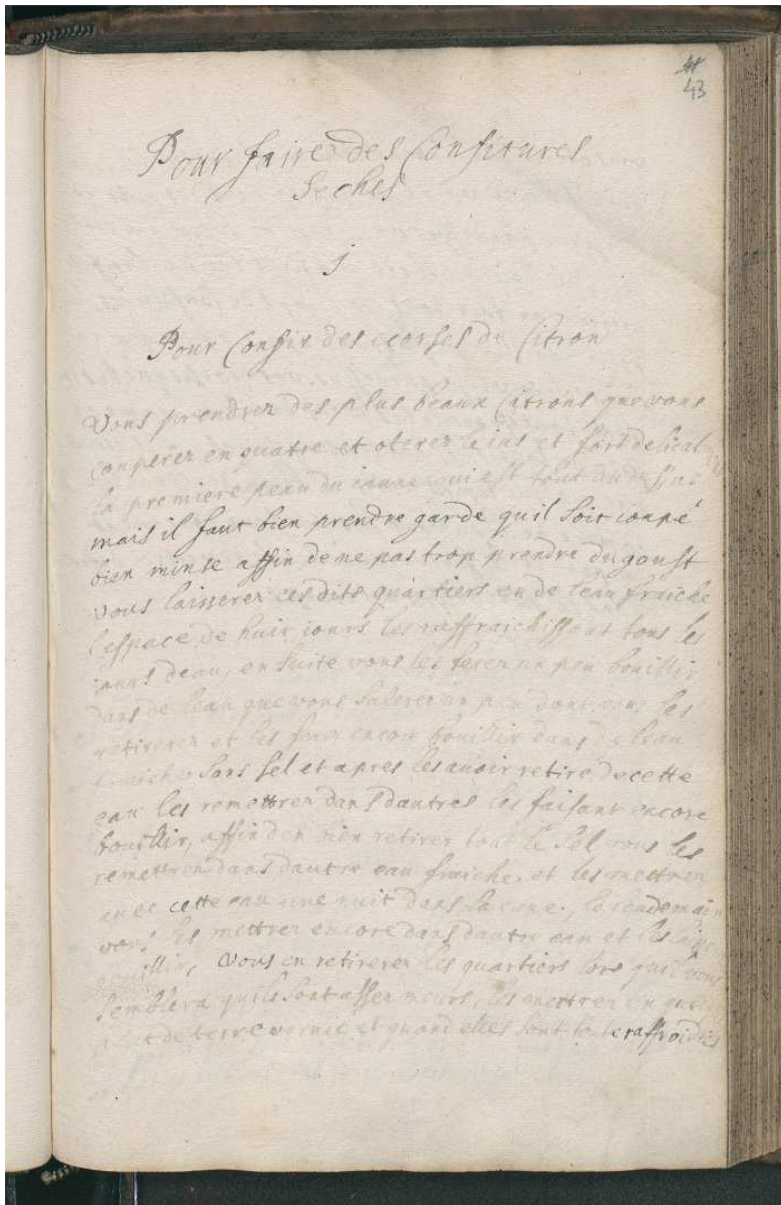 43
Pour faire des Confitures
Seches
1
Pour Confir des ecorses de Citron
Vous prendrez des plus beaux Citrons que vous
couperez en quatre et oterez le ius et fort delicatm
la premiere peau du iaune qui est tout au dessus
mais il faut bien prendre garde quil soit coupé
bien minse affin de ne pas trop prendre du goust
vous laisserez ces dits quartiers en de leau fraiche
lespace de huit iours les raffraichissant tous les
iours deau, en suite vous les ferez un peu bouillir
dans de leau que vous salerez un peu dont vous les
retirerez et les ferez encore bouillir dans de leau
fraiche sans sel et apres les auoir retiré de cette
eau les remettrez dans dautres les faisant encore
bouillir, affin den bien retirer tout le sel vous les
remettrez dans dautre eau fraiche, et les mettrez
auec cette eau une nuit dans la caue, le lendemain
vous les mettrez encore dans dautre eau et les
Vous en retirerez les quartiers lors quil vous
semblera quils sont assez meurs, les mettrez en
de terre vernie et quand elles sont raffroidies